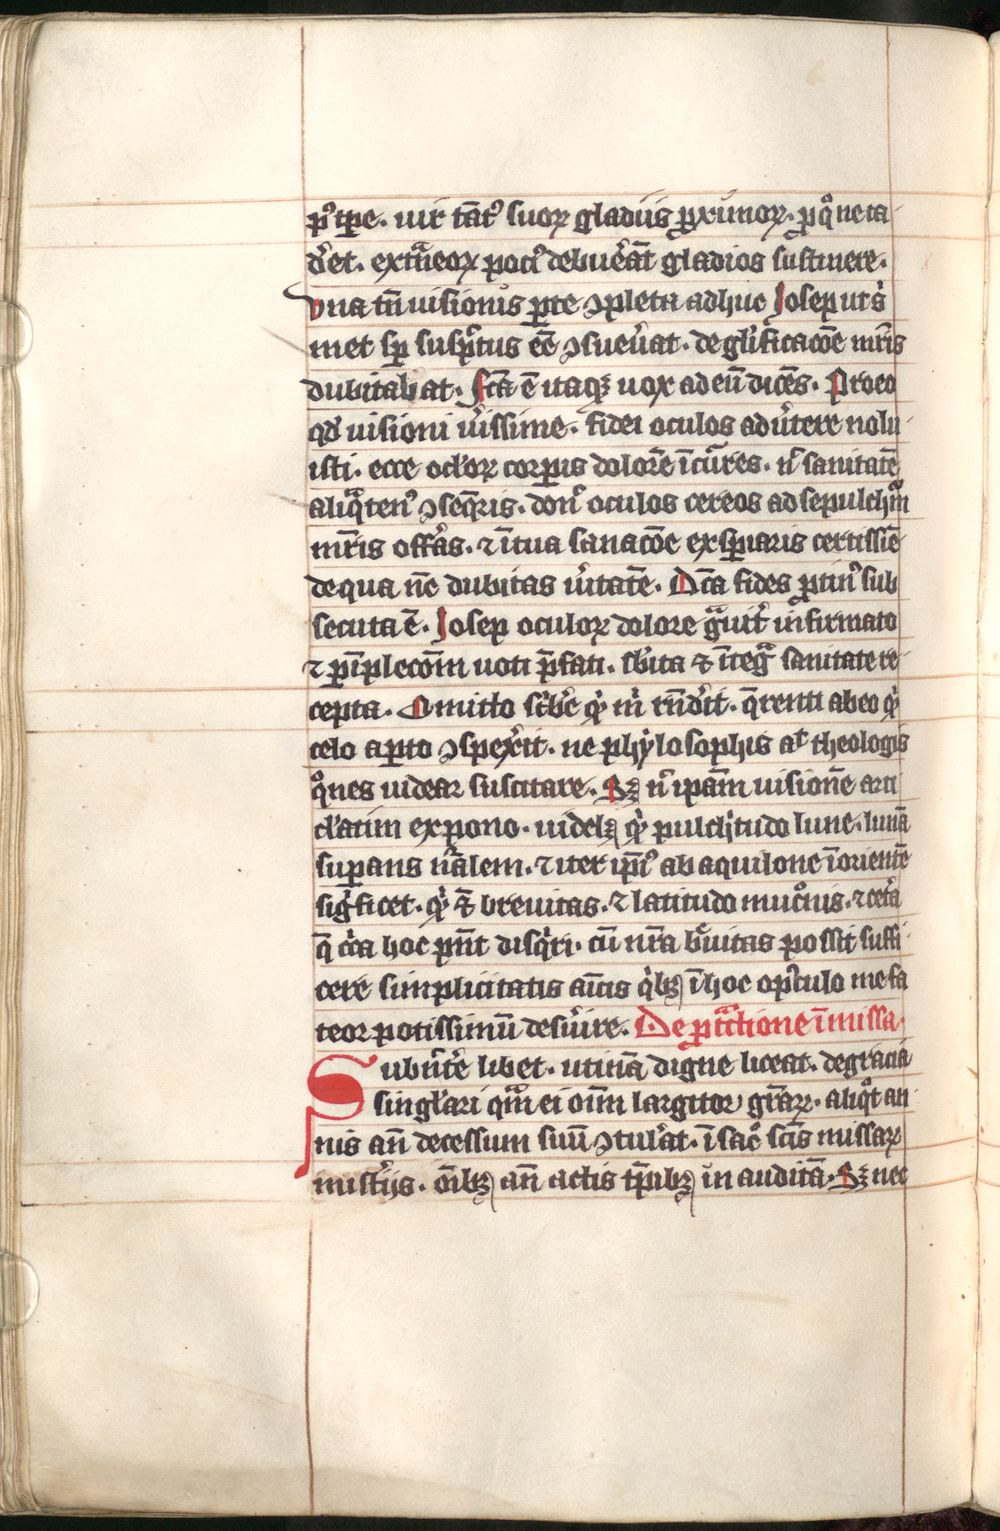 p᷒ tp̄e. uir tāt᷒ suoꝝ gladiis ꝓxīmoꝝ. ꝓ qͦ ne ca
d̾et. ext͛neoꝝ poci᷒ debuer̄āt gladios sustinere.
Una tn̄ uisionis ꝑte ꝯpleta adhuc Josep ut s̾
met sꝑ susp̄tus eē ꝯsueu̾at. de gl̾ificacōe mr̄is
dubitabat. fc̄a ē itaqꝫ uox ad eū dicēs. Pro eo
qd̾ uisioni u̾issime. fidei oculos adu̾tere nolu
isti. ecce ocl̾oꝝ corꝑis dolorē īcurres. n̾ sanitatē
aliqͣten᷒ ꝯseq̄ris. don̾ oculos cereos ad sepulchͬm
mr̄is off̾as. ⁊ ī tua sanacōe exꝑiaris certissiē
de qua nc̄ dubitas u̾itatē. Dc̄a fides ꝓtin᷒ sub
secuta ē. Josep oculoꝝ dolore gͣuit̾ infirmato
⁊ ꝑ īpleco̅m uoti p̄fati. sb̾ita ⁊ ītegͣ sanitate re
cepta. Omitto sc̾b̾e qͥ m̾ rn̄d̾it. q̄renti ab eo qͥ
celo aꝑto ꝯspex̾it. ne phylosophis aͭ theologis
qͦnes uidear suscitare. Sꝫ n̾ ipām uisionē arti
cl̾atim expono. uidelꝫ qͥ pulch̾tudo lune. lunā
suꝑans nr̄alem. ⁊ iter ip̄i᷒ ab aquilone ī orientē
sig̾ficet. qͥ ⁊ breuitas. ⁊ latitudo mucͦnis. ⁊ cet̾a
q̄ cͥca hoc pn̄t disqͥri. cū nr̄a bͬuitas possit suffi
cere simplicitatis amīcis qͥbꝫ ī hoc opͬculo me fa
teor potissimū deseru̾ire. De ꝑtͣctione ī missa.
Subn̄c̾te libet. utinā digne liceat. de gracia
singl̾ari qͣm ei oīm largitor gr̄aꝝ. aliqͦt an
nis an̄ decessum suū ꝯtul̾at. ī sac̾o sc̄is missaꝝ
mist̾ijs. oībꝫ an̄ actis tp̄ibꝫ in auditā. Sꝫ nec